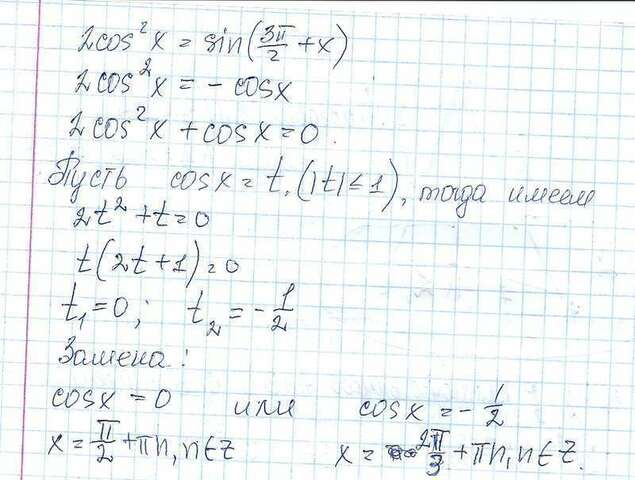 2cos²x = sin(3π/2 + x)
2cos²x = - cosx
2cos²x + cosx = 0.
Пусть cosx = t, (|t| ≤ 1), тогда имеем
2t² + t = 0
t(2t + 1) = 0
t₁ = 0; t₂ = - 1/2
Замена:
cosx = 0 или cosx = - 1/2
x = π/2 + πn, n∈Z x = 2π/3 + πn, n∈Z.